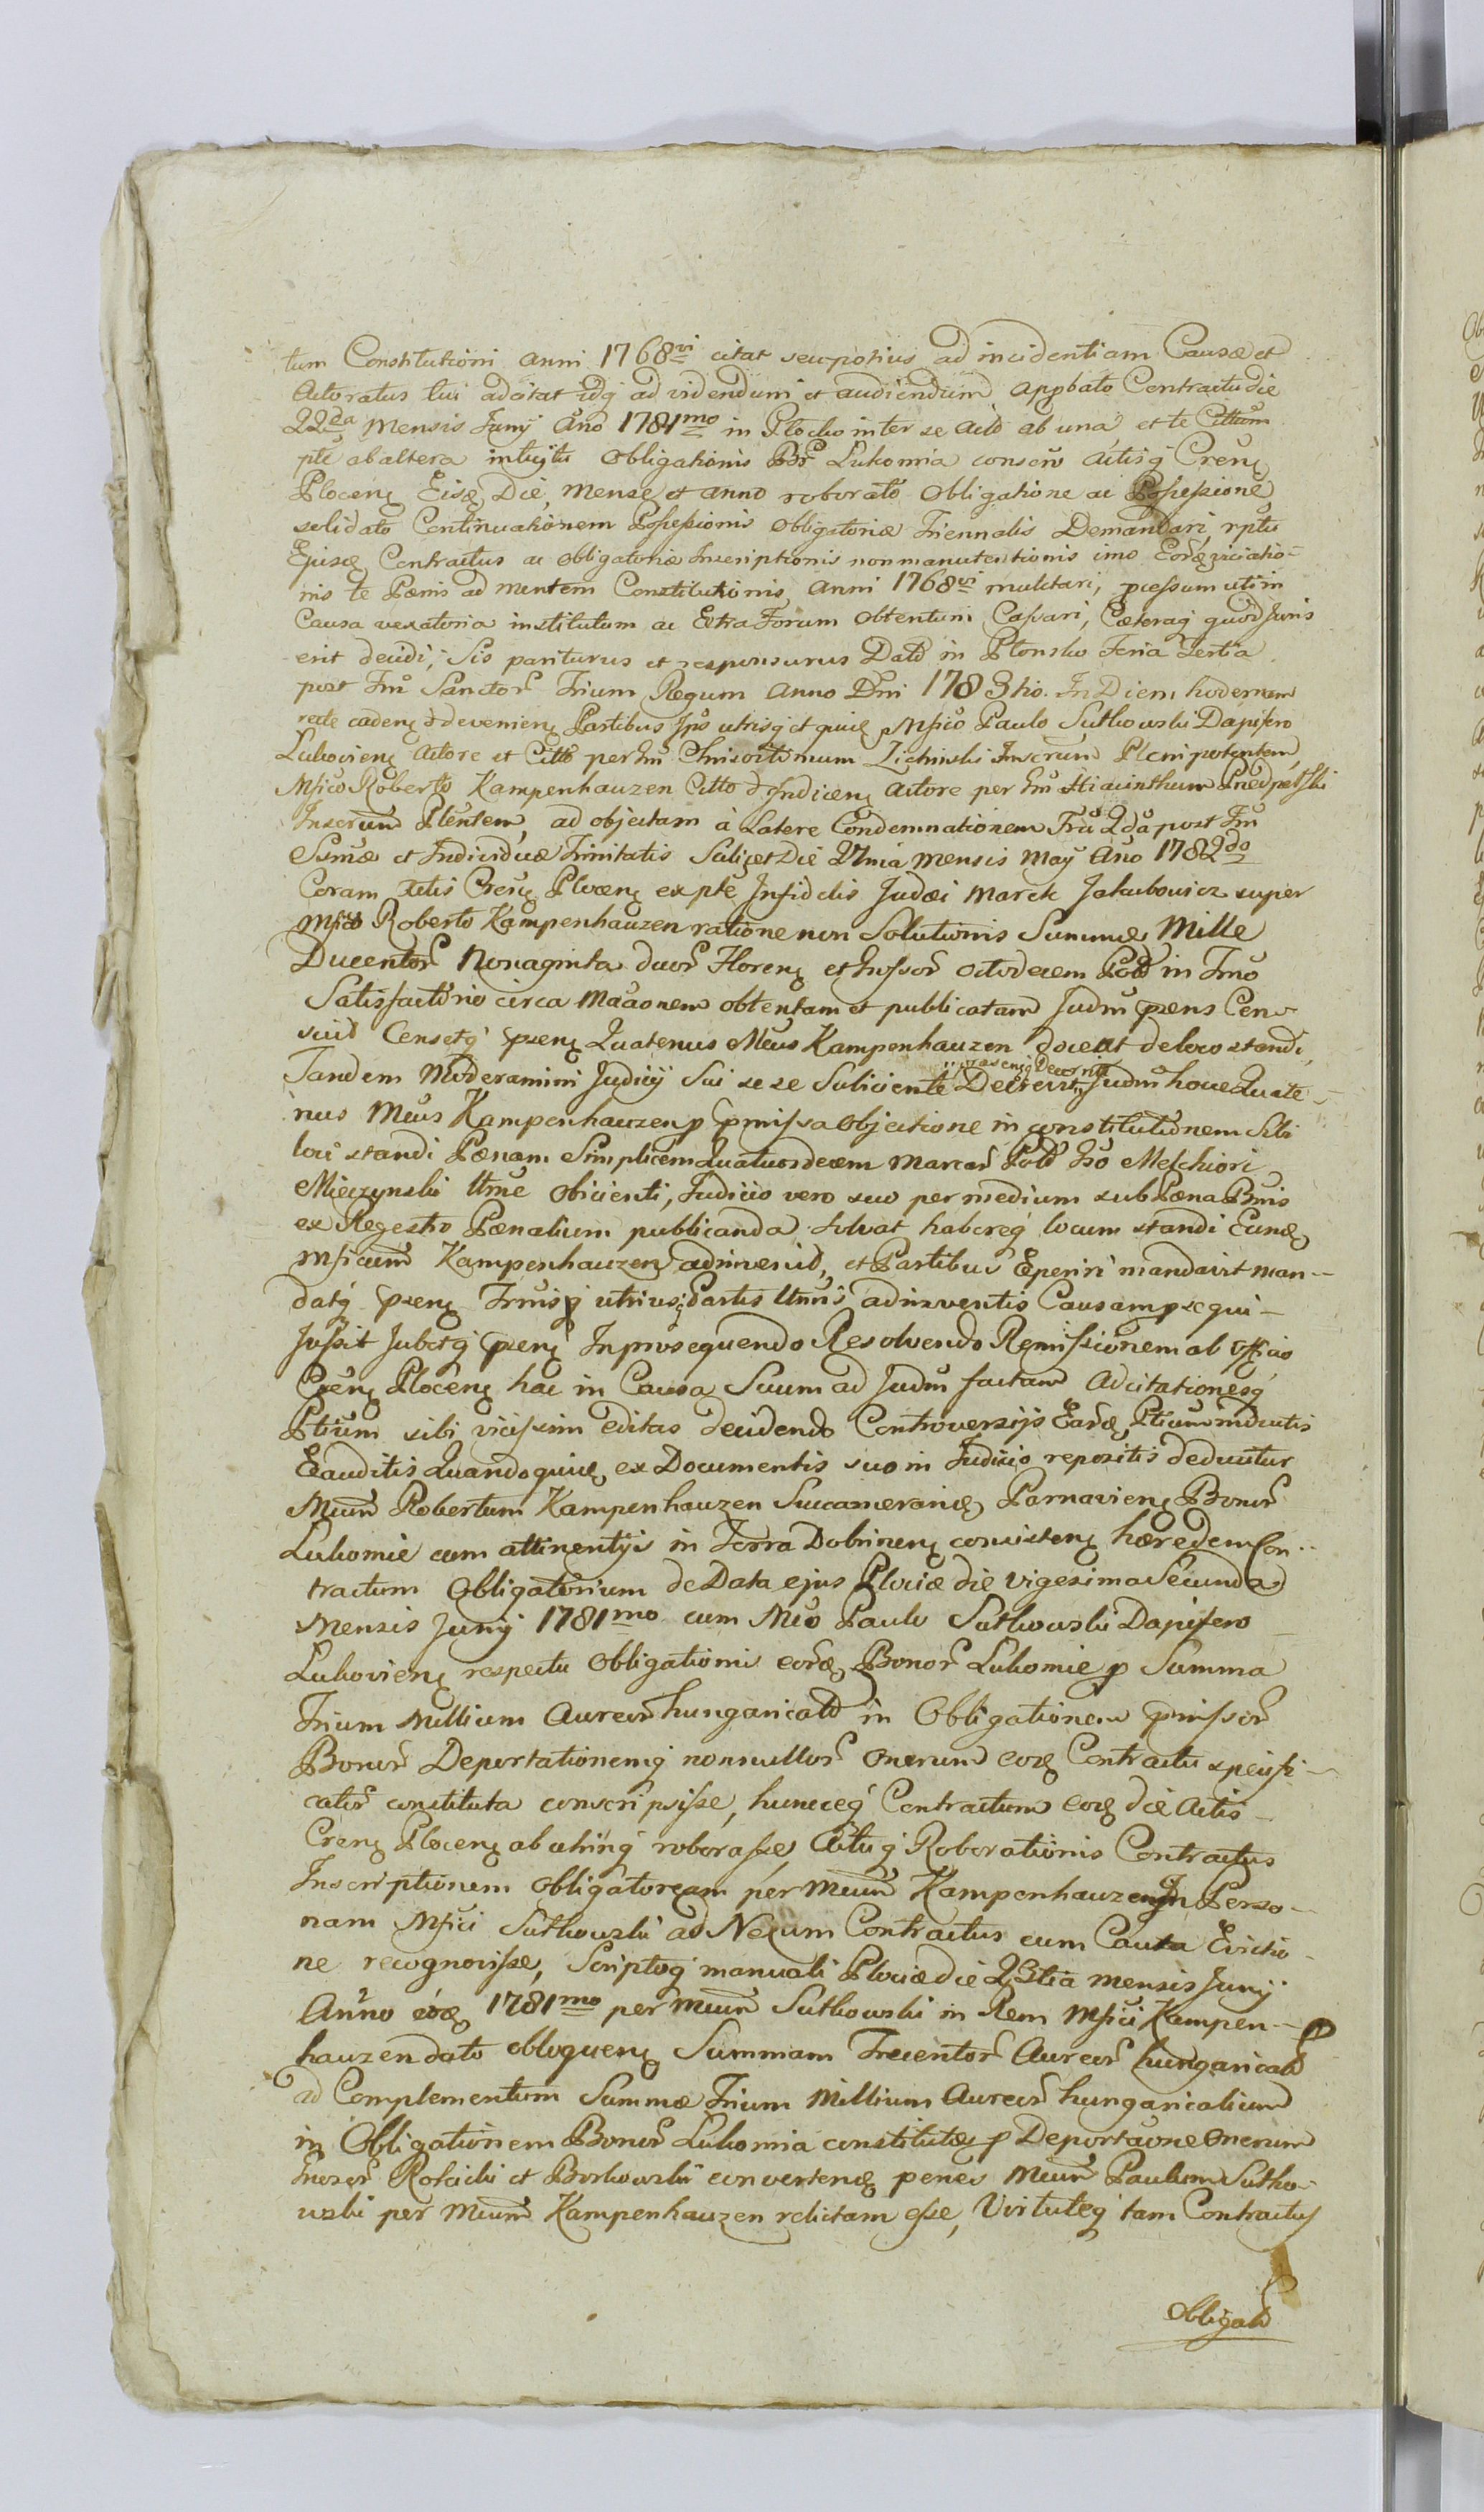 tum Constitutioni anni 1768vi citat seu potius ad incidentiam Causæ et
Actoratus tui adcitat idq ad videndum et audiendum appbato Contractu die
22da Mensis Junij Año 1781mo in Plocko inter se Actō ab una et te Cittum
pte ab altera intuitu Obligationis Br Lukomia conscro Actisq Creñ
Ploceñ Eisđ Die, Mense et anno roborato Obligatione ac Possessione
solidato Continuationem Possessionis Obligatoriæ Triennalis Demandari, rptu
Ejusđ Contractus ac Obligatoriæ Inscriptionis non manutentionis imo Eorđ viciatio-
nis te Pœnis ad mentem Constitutionis Anni 1768vi mulctari, pcessum uti in
Causa vexatoria institutum ac Extra Forum Obtentum Cassari, Cæteraq quod Juris
erit decidi, Sis pariturus et responsurus Datt in Plonsko Feria Tertia
post Fm Sanctor Trium Regum Anno Dni 1783tio. In Diem hodiernum
recte cadeñ & devenieñ Partibus Ips utrisq et quid Mfico Paulo Sutkowski Dapifero
Lukovieñ Actore et Citto per Gm Chrisostomum Zichinski Inscrum Plenipotentem,
Mfico Roberto Kampenhauzen Citto & Indiceñ Actore per Gm Hiacinthum
Inscrum Pltentem, ad objectam à Latere Condemnationem Fria 2da post Fm
Ssmæ et Individuæ Trinitatis Scilicet Die 27ma Mensis May Año 1782do
Coram Actis Creñ Ploceñ ex pte Infidelis Judæi Marek Jakubowicz super
Mfico Roberto Kampenhauzen ratione non Solutionis Summæ Mille
Ducentor Nonaginta duor Floreñ et Grossor octodecem Poll in Trno
Satisfactorio circa Macaonem obtentam et publicatam Judm pzens Cen-
suit Censetq pzeñ Quatenus Meus Kampenhauzen doceat de loco standi,
Tandem Moderamini Judicij Sui se se Subiciente Decrevit Judm hocce Quate-
nus Meus Kampenhauzen p pmissa Objectione in constitutionem Sibi
loci standi Pœnam Simplicem Quatuordecem Marcar Poll Gso Melchiori
Mieczynski Ltme Obicienti, Judicio vero suo per medium sub Pœna Bnis
ex Regestro Pœnalium publicanda solvat habereq locum standi Eund
Mficum Kampenhauzen adinvenit, et Partibus Experiri mandavit man-
datq pzeñ Trnisq utriusq Partis Ltmis adinventis Causam psequi
Jussit Jubetq pzeñ In prosequendo Resolvendo Remissionem ab Officio
Creñ Ploceñ hac in Causa Suum ad Judm factam Adcitationesq
Ptium sibi vicissim editas decidendo Controversijs Earđ Ptium inductis
Exauditis Quandoquid ex Documentis suo in Judicio repositis deducitur
Meum Robertum Kampenhauzen Succameranid Parnavieñ Bonor
Lukomie cum attinentijs in Terra Dobrineñ consisteñ hæredem Con-
tractum Obligatorium de Data ejus Plociæ die vigesima Secunda
Mensis Junij 1781mo cum Meo Paulo Sutkowski Dapifero
Lukovieñ respectu Obligationis eorđ Bonor Lukomie p Summa
Trium Millium Aureor hungaricall in Obligationem pmissor
Bonor Deportationemq nonnullor Onerum eođ Contractu specifi-
cator constituta conscripsisse, hunceq Contractum eođ die Actis
Creñ Ploceñ ab utrinq roborasse, Actuq Roborationis Contractus
Inscriptionem Obligatoream per Meum Kampenhauzen In Perso-
nam Mfici Sutkowski ad Nexum Contractus cum Cauta Evictio-
ne recognovisse, Scriptoq manuali Plociæ die 23tia mensis Junij
Anno eođ 1781mo per Meum Sutkowski in Rem Mfici Kampen-
hauzen dato obloqueñ Summam Trecentor Aureor hungaricall
ad Complementum Summæ Trium Millium Aureor hungaricalium
in Obligationem Bonor Lukomia constitutæ p Deportaone Onerum
Gnosor Rościski et Borkowski convertend penes Meum Paulum Sutko-
wski per Meum Kampenhauzen relictam esse, Virtuteq tam Contractus
Obligatt